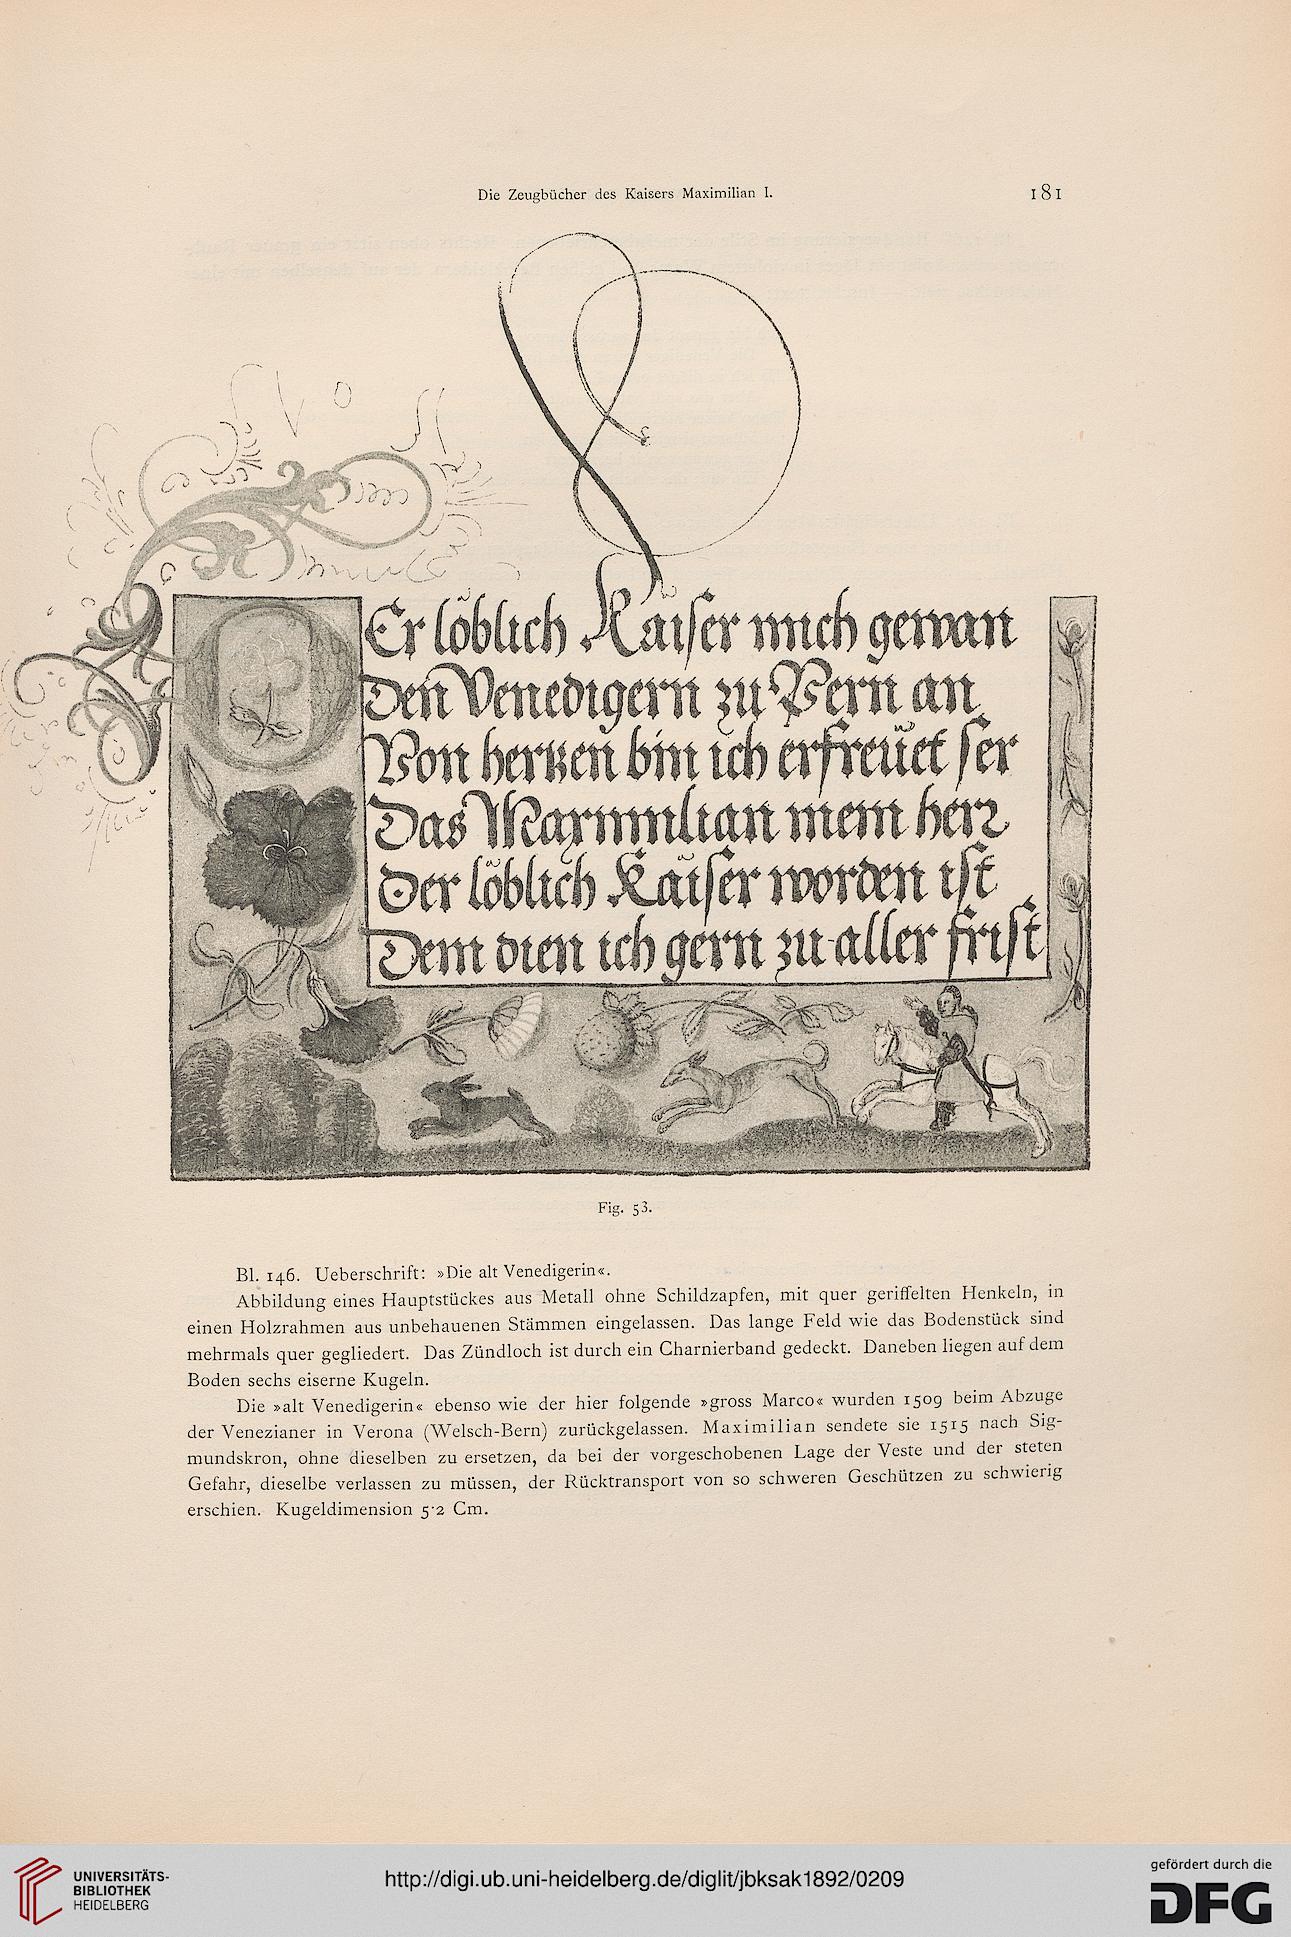 Die Zeugbücher des Kaisers Maximilian I.
181
DEr löblich Kaiser mich gewan
Den Venedigern zu Bern an
Von hertzen bin ich erfreuet ser
Das Maxymilian mein herr
Der löblich Kaiser worden ist
Dem dien ich gern zu aller frist
Fig. 53.
Bl. 146. Ueberschrift: »Die alt Venedigerin«.
Abbildung eines Hauptstückes aus Metall ohne Schildzapfen, mit quer geriffelten Henkeln, in
einen Holzrahmen aus unbehauenen Stämmen eingelassen. Das lange Feld wie das Bodenstück sind
mehrmals quer gegliedert. Das Zündloch ist durch ein Charnierband gedeckt. Daneben liegen auf dem
Boden sechs eiserne Kugeln.
Die »alt Venedigerin« ebenso wie der hier folgende »gross Marco« wurden 1509 beim Abzuge
der Venezianer in Verona (Welsch-Bern) zurückgelassen. Maximilian sendete sie 1515 nach Sig-
mundskron, ohne dieselben zu ersetzen, da bei der vorgeschobenen Lage der Veste und der steten
Gefahr, dieselbe verlassen zu müssen, der Rücktransport von so schweren Geschützen zu schwierig
erschien. Kugeldimension 5·2 Cm.
UNIVERSITÄTS-
BIBLIOTHEK
HEIDELBERG
http://digi.ub.uni-heidelberg.de/diglit/jbksak1892/0209
gefördert durch die
DFG